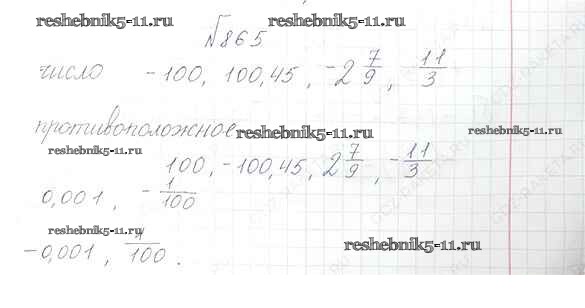 reshebnik5-11.ru reshebnik5-11.ru
№865
число -100, 100,45, -2 7/9, -11/3
противоположное reshebnik5-11.ru reshebnik5-11.ru
reshebnik5-11.ru
100, -100,45, 2 7/9, -11/3
0,001, -1/100
reshebnik5-11.ru
-0,001, 1/100.
reshebnik5-11.ru